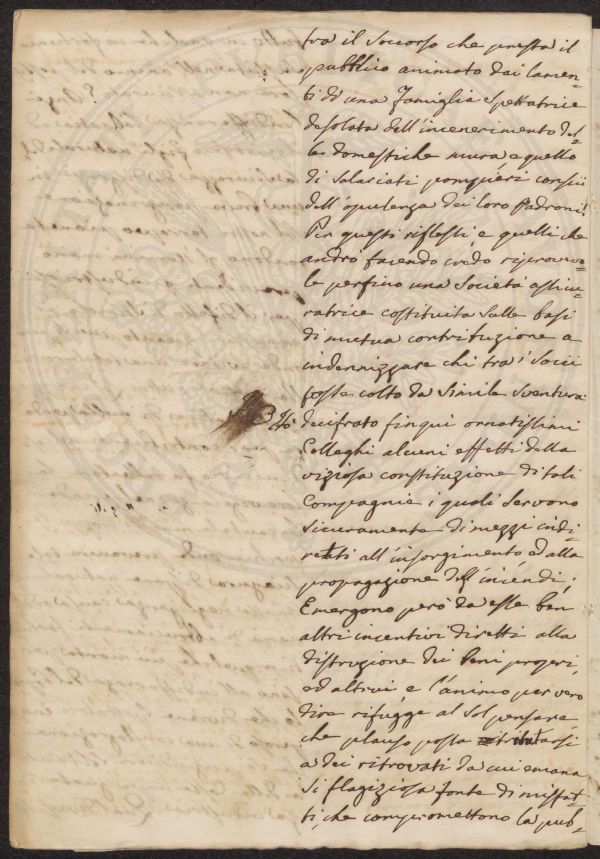 fra il Soccorso che presta il
pubblico animato dai lamen-
ti di una Famiglia Spettatrice
desolata dell'incenerimento del-
le domestiche mura e quello
di Salariati pompieri conscii
dell'opulenza dei loro Padroni!
Per questi riflessi e quelli che
andrò facendo credo riprovevo-
le perfino una Società assicu-
ratrice costituita Sulle basi
di mutua contribuzione a
indennizzare chi tra' Socii
fosse colto da Simile Sventura.
Ho decifrato finqui ornatissimi
Colleghi alcuni effetti della
viziosa constituzione di tali
Compagnie i quali Servono
Sicuramente di mezzi indi-
retti all'insorgimento, ed alla
propagazione dell'incendi;
Emergono però da esse ben
altri incentivi diretti alla
distruzione dei beni proprj,
ed altrui, e l'animo per vero
dire rifugge al Sol pensare
che plauso possa tributarsi
a dei ritrovati da cui emana
Si flagiziosa fonte di misfat-
ti, che compromettono la pub-